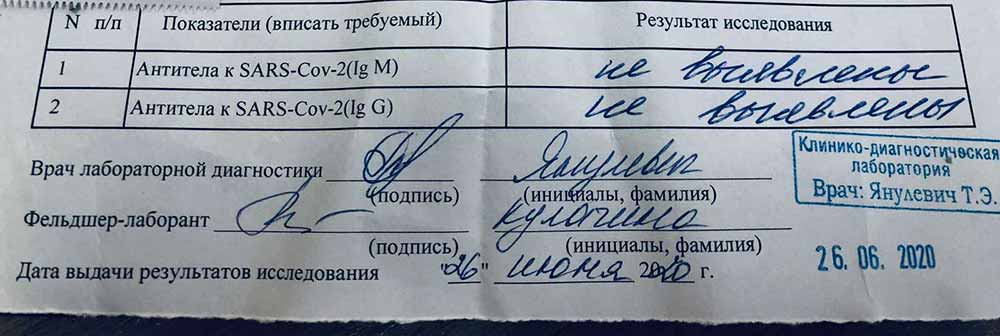 N п/п Показатели (вписать требуемый) Результат исследования
1 Антитела к SARS-Cov-2(Ig M) не выявлены
2 Антитела к SARS-Cov-2(Ig G) не выявлены
Врач лабораторной диагностики Янулевич
(подпись) (инициалы, фамилия)
Фельдшер-лаборант Кулагина
(подпись) (инициалы, фамилия)
Дата выдачи результатов исследования "26" июня 2020 г.
Клинико-диагностическая
лаборатория
Врач: Янулевич Т.Э.
26. 06. 2020